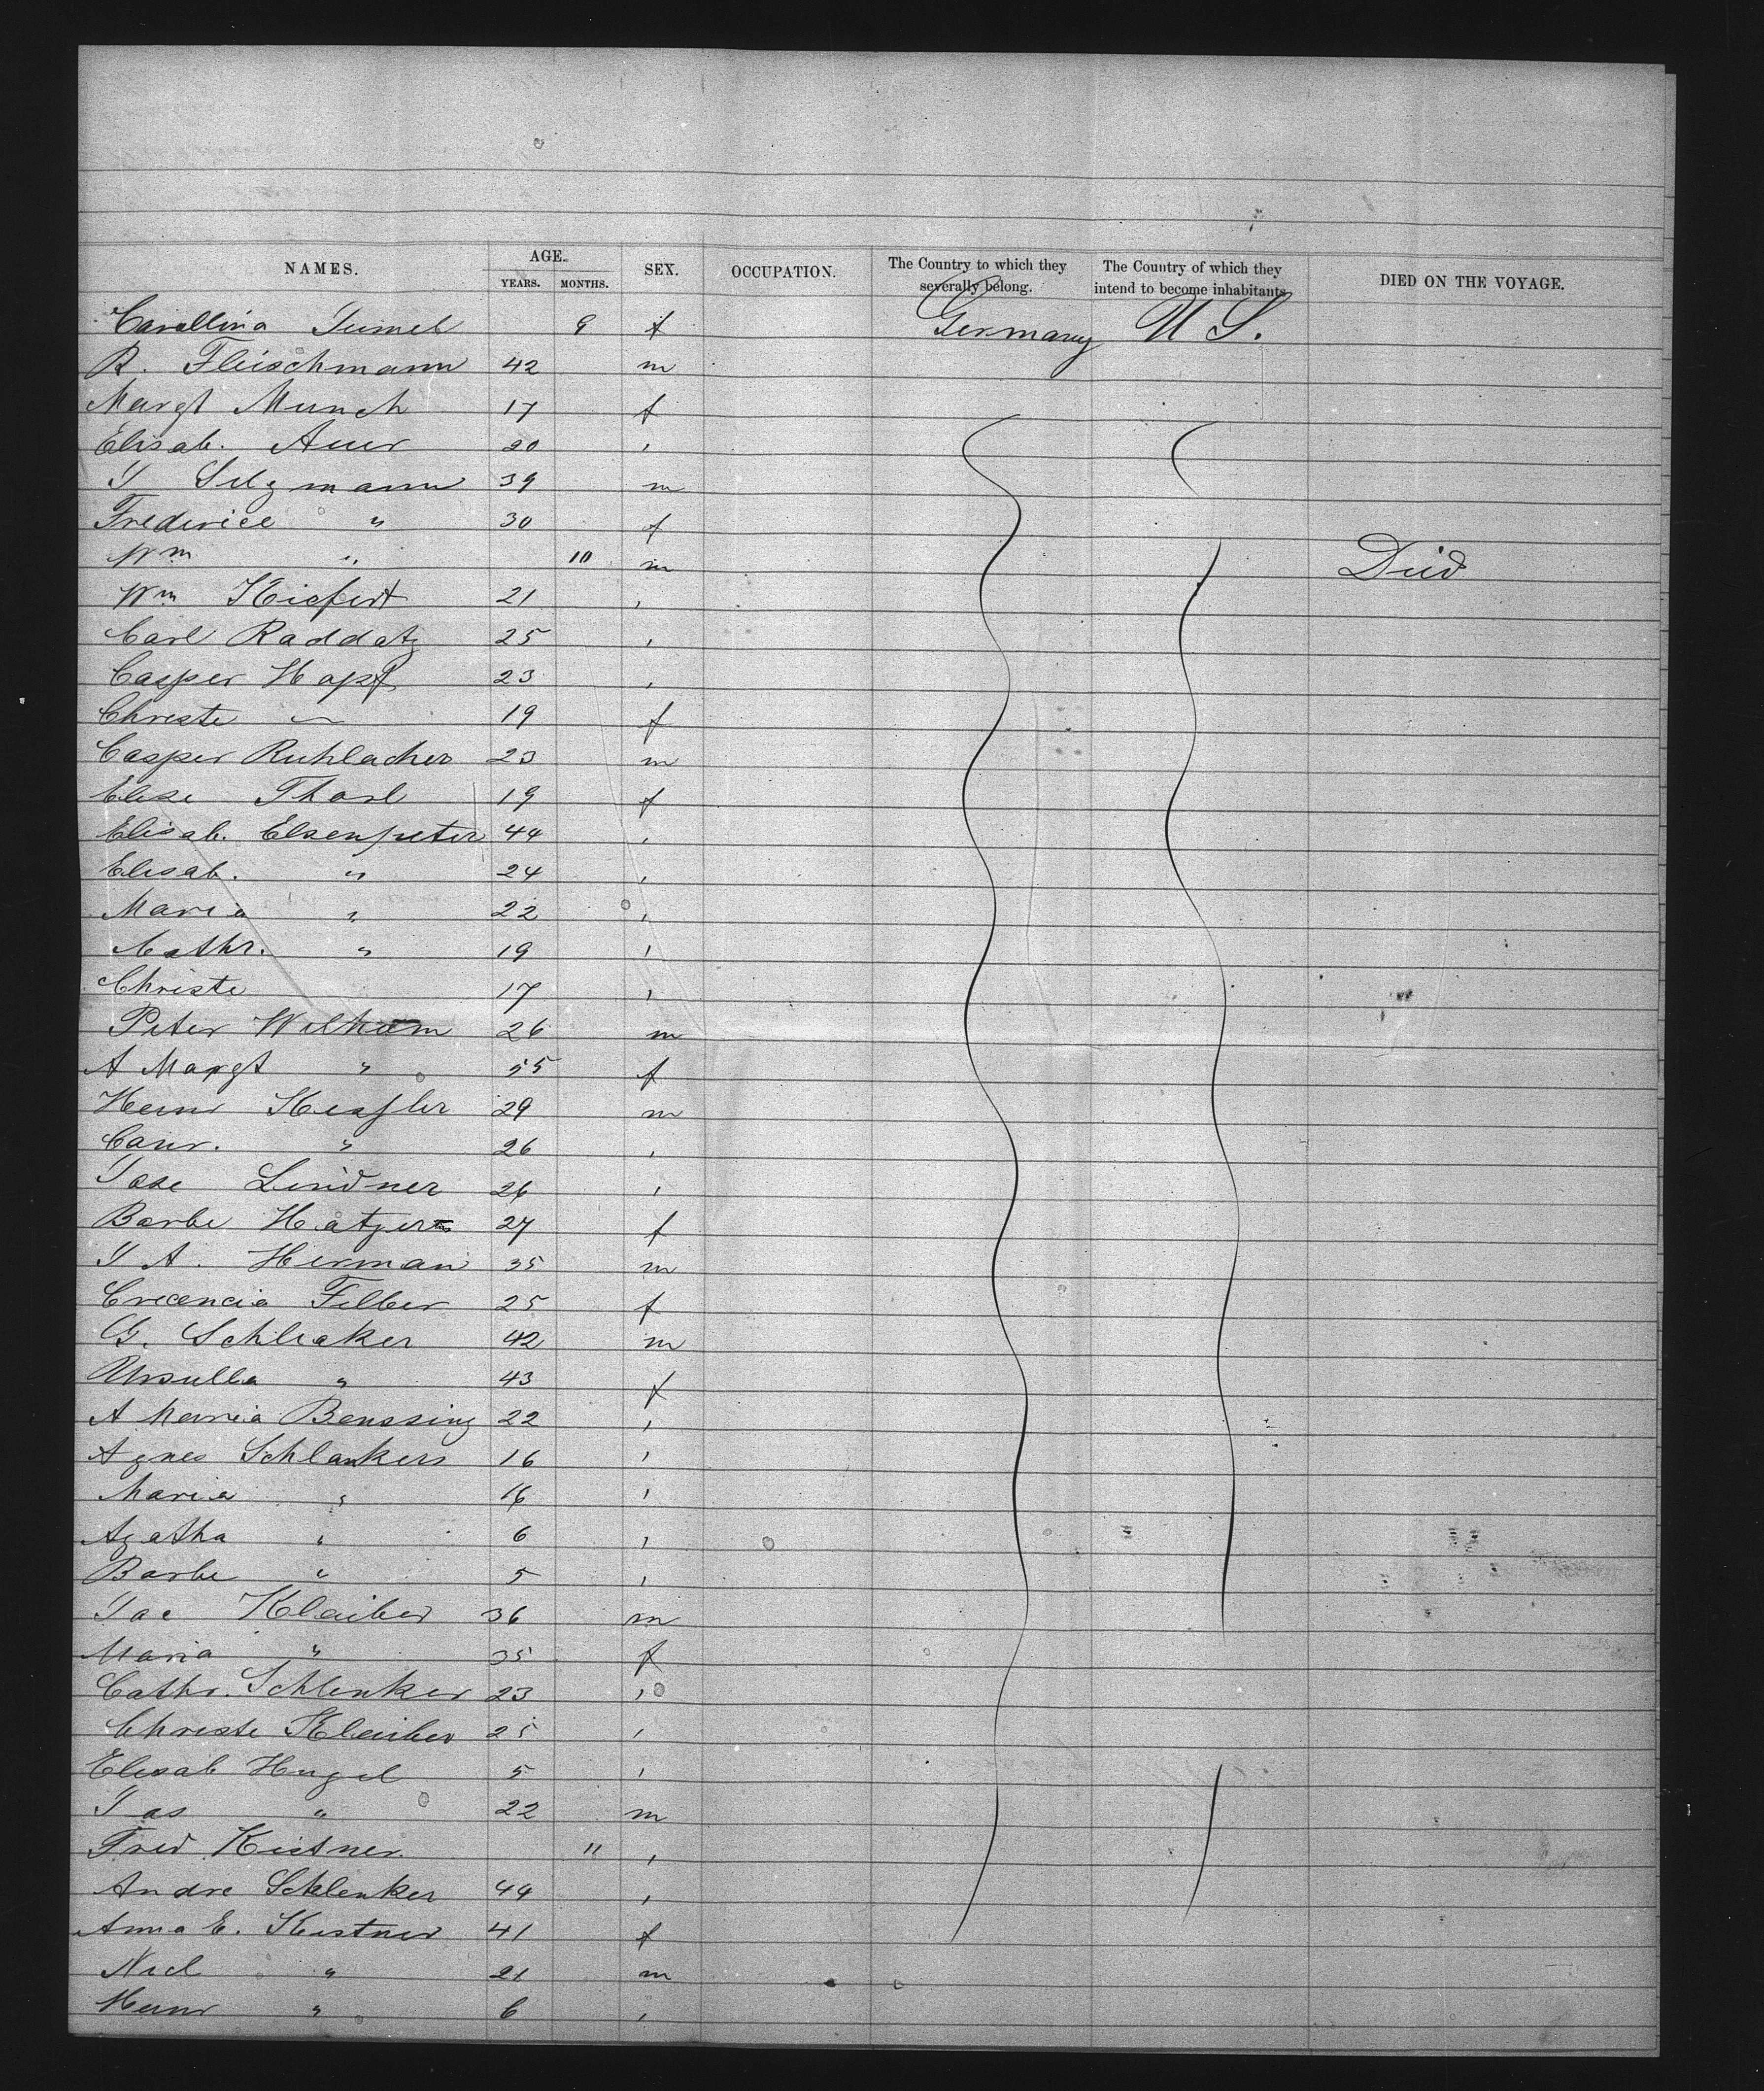 NAMES. AGE. YEARS. MONTHS. SEX. OCCUPATION. The Country to which they severally belong. The Country of which they intend to become inhabitants. DIED ON THE VOYAGE.
Carollina 9 f Germany U S.
R. Fleischmann 42 m
Margt Munch 17 f
Elisab. Auer 20 ,
Selzmann 39 m
Frederice " 30 f
Wm " 10 m Died
Wm Kiefert 21 ,
Carl Raddatz 25 ,
Casper Hopf 23 ,
Christe " 19 f
Casper Ruhlacher 23 m
Elise Tharl 19 f
Elisab. Elsenpeter 44 ,
Elisab. " 24 ,
Maria " 22 ,
Cathr. " 19 ,
Christe 17 ,
Peter Wilhem 26 m
A Margt " 55 f
Heinr Kessler 29 m
Conr. " 26 ,
Jose Lindner 26 ,
Barbe 27 f
J A. Herman 35 m
Crecencia Filber 25 f
G. Schleaker 42 m
Ursulla " 43 f
A Maria Benssing 22 ,
Agnes Schlankers 16 ,
Maria " ,
Agatha " 6 ,
Barbe " 5 ,
Jac Klaiber 36 m
Maria " 35 f
Cathr. Schlenker 23 ,
Christe Klaiber 25 ,
Elisab Hugel 5 ,
Jas " 22 m
Fred Kistner 11 ,
Andre Schlenker 44 ,
Anna E. Kistner 41 f
Nicl " 21 m
Heinr " 6 ,